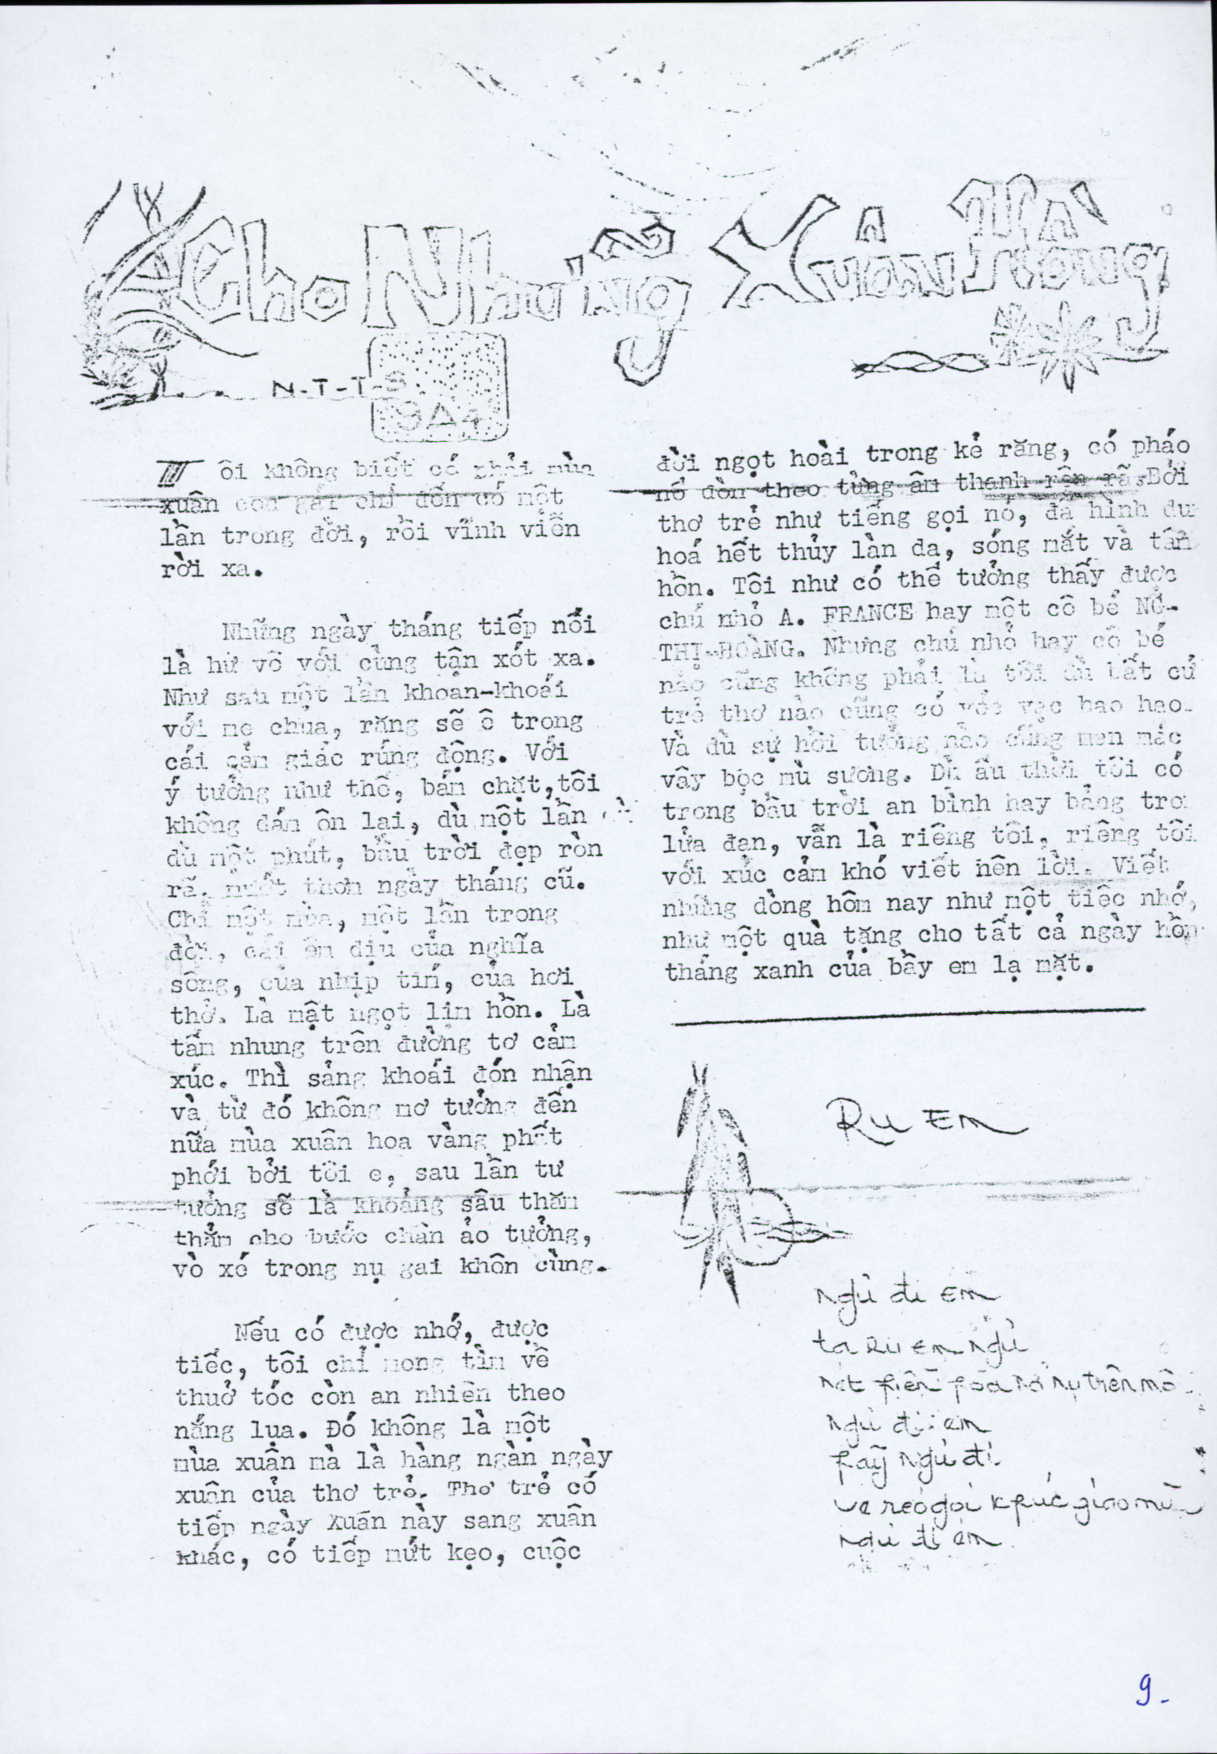 Cho Những Xuân Thả Rông
N-T-T-S
9A4
Tôi không biết có phải mùa
xuân con gái chỉ đến có một
lần trong đời, rồi vĩnh viễn
rời xa.
Những ngày tháng tiếp nối
là hư vô với cùng tận xót xa.
Như sau một lần khoan-khoái
với me chua, răng sẽ ê trong
cái cảm giác rúng động. Với
ý tưởng như thế, bám chặt, tôi
không dám ôn lại, dù một lần
dù một phút, bầu trời đẹp ròn
rã, mướt thơm ngày tháng cũ.
Chỉ một mùa, một lần trong
đời, cái êm dịu của nghĩa
sống, của nhịp tim, của hơi
thở. Là mật ngọt lim hồn. Là
tấm nhung trên đường tơ cảm
xúc. Thì sảng khoái đón nhận
và từ đó không mơ tưởng đến
nữa mùa xuân hoa vàng phất
phới bởi tôi e, sau lần tư
tưởng sẽ là khoảng sâu thăm
thẳm cho bước chân ảo tưởng,
vò xé trong nụ gai khôn cùng.
Nếu có được nhớ, được
tiếc, tôi chỉ mong tìm về
thuở tóc còn an nhiên theo
nắng lụa. Đó không là một
mùa xuân mà là hàng ngàn ngày
xuân của thơ trẻ. Thơ trẻ có
tiếp ngày Xuân này sang xuân
khác, có tiếp mứt kẹo, cuộc
đời ngọt hoài trong kẻ răng, có pháo
nổ dòn theo từng âm thanh rên rã. Bởi
thơ trẻ như tiếng gọi nó, đã hình dung
hoá hết thủy làn da, sóng mắt và tâm
hồn. Tôi như có thể tưởng thấy được
chú nhỏ A. FRANCE hay một cô bé
THỊ-HOÀNG. Nhưng chú nhỏ hay cô bé
nào cũng không phải là tôi dù bất cứ
trẻ thơ nào cũng có vóc vạc hao hao.
Và dù sự hồi tưởng nào cũng men mác
vây bọc mù sương. Dù ấu thời tôi có
trong bầu trời an bình hay bảng
lửa đạn, vẫn là riêng tôi, riêng tôi
với xúc cảm khó viết nên lời. Viết
những dòng hôm nay như một tiếc nhớ,
như một quà tặng cho tất cả ngày hồng
tháng xanh của bầy em lạ mặt.
Ru Em
Ngủ đi em
ta ru em ngủ
nụ trên mô
ngủ đi em
hãy ngủ đi
ve réo gọi khúc giao mùa
ngủ đi em
9.